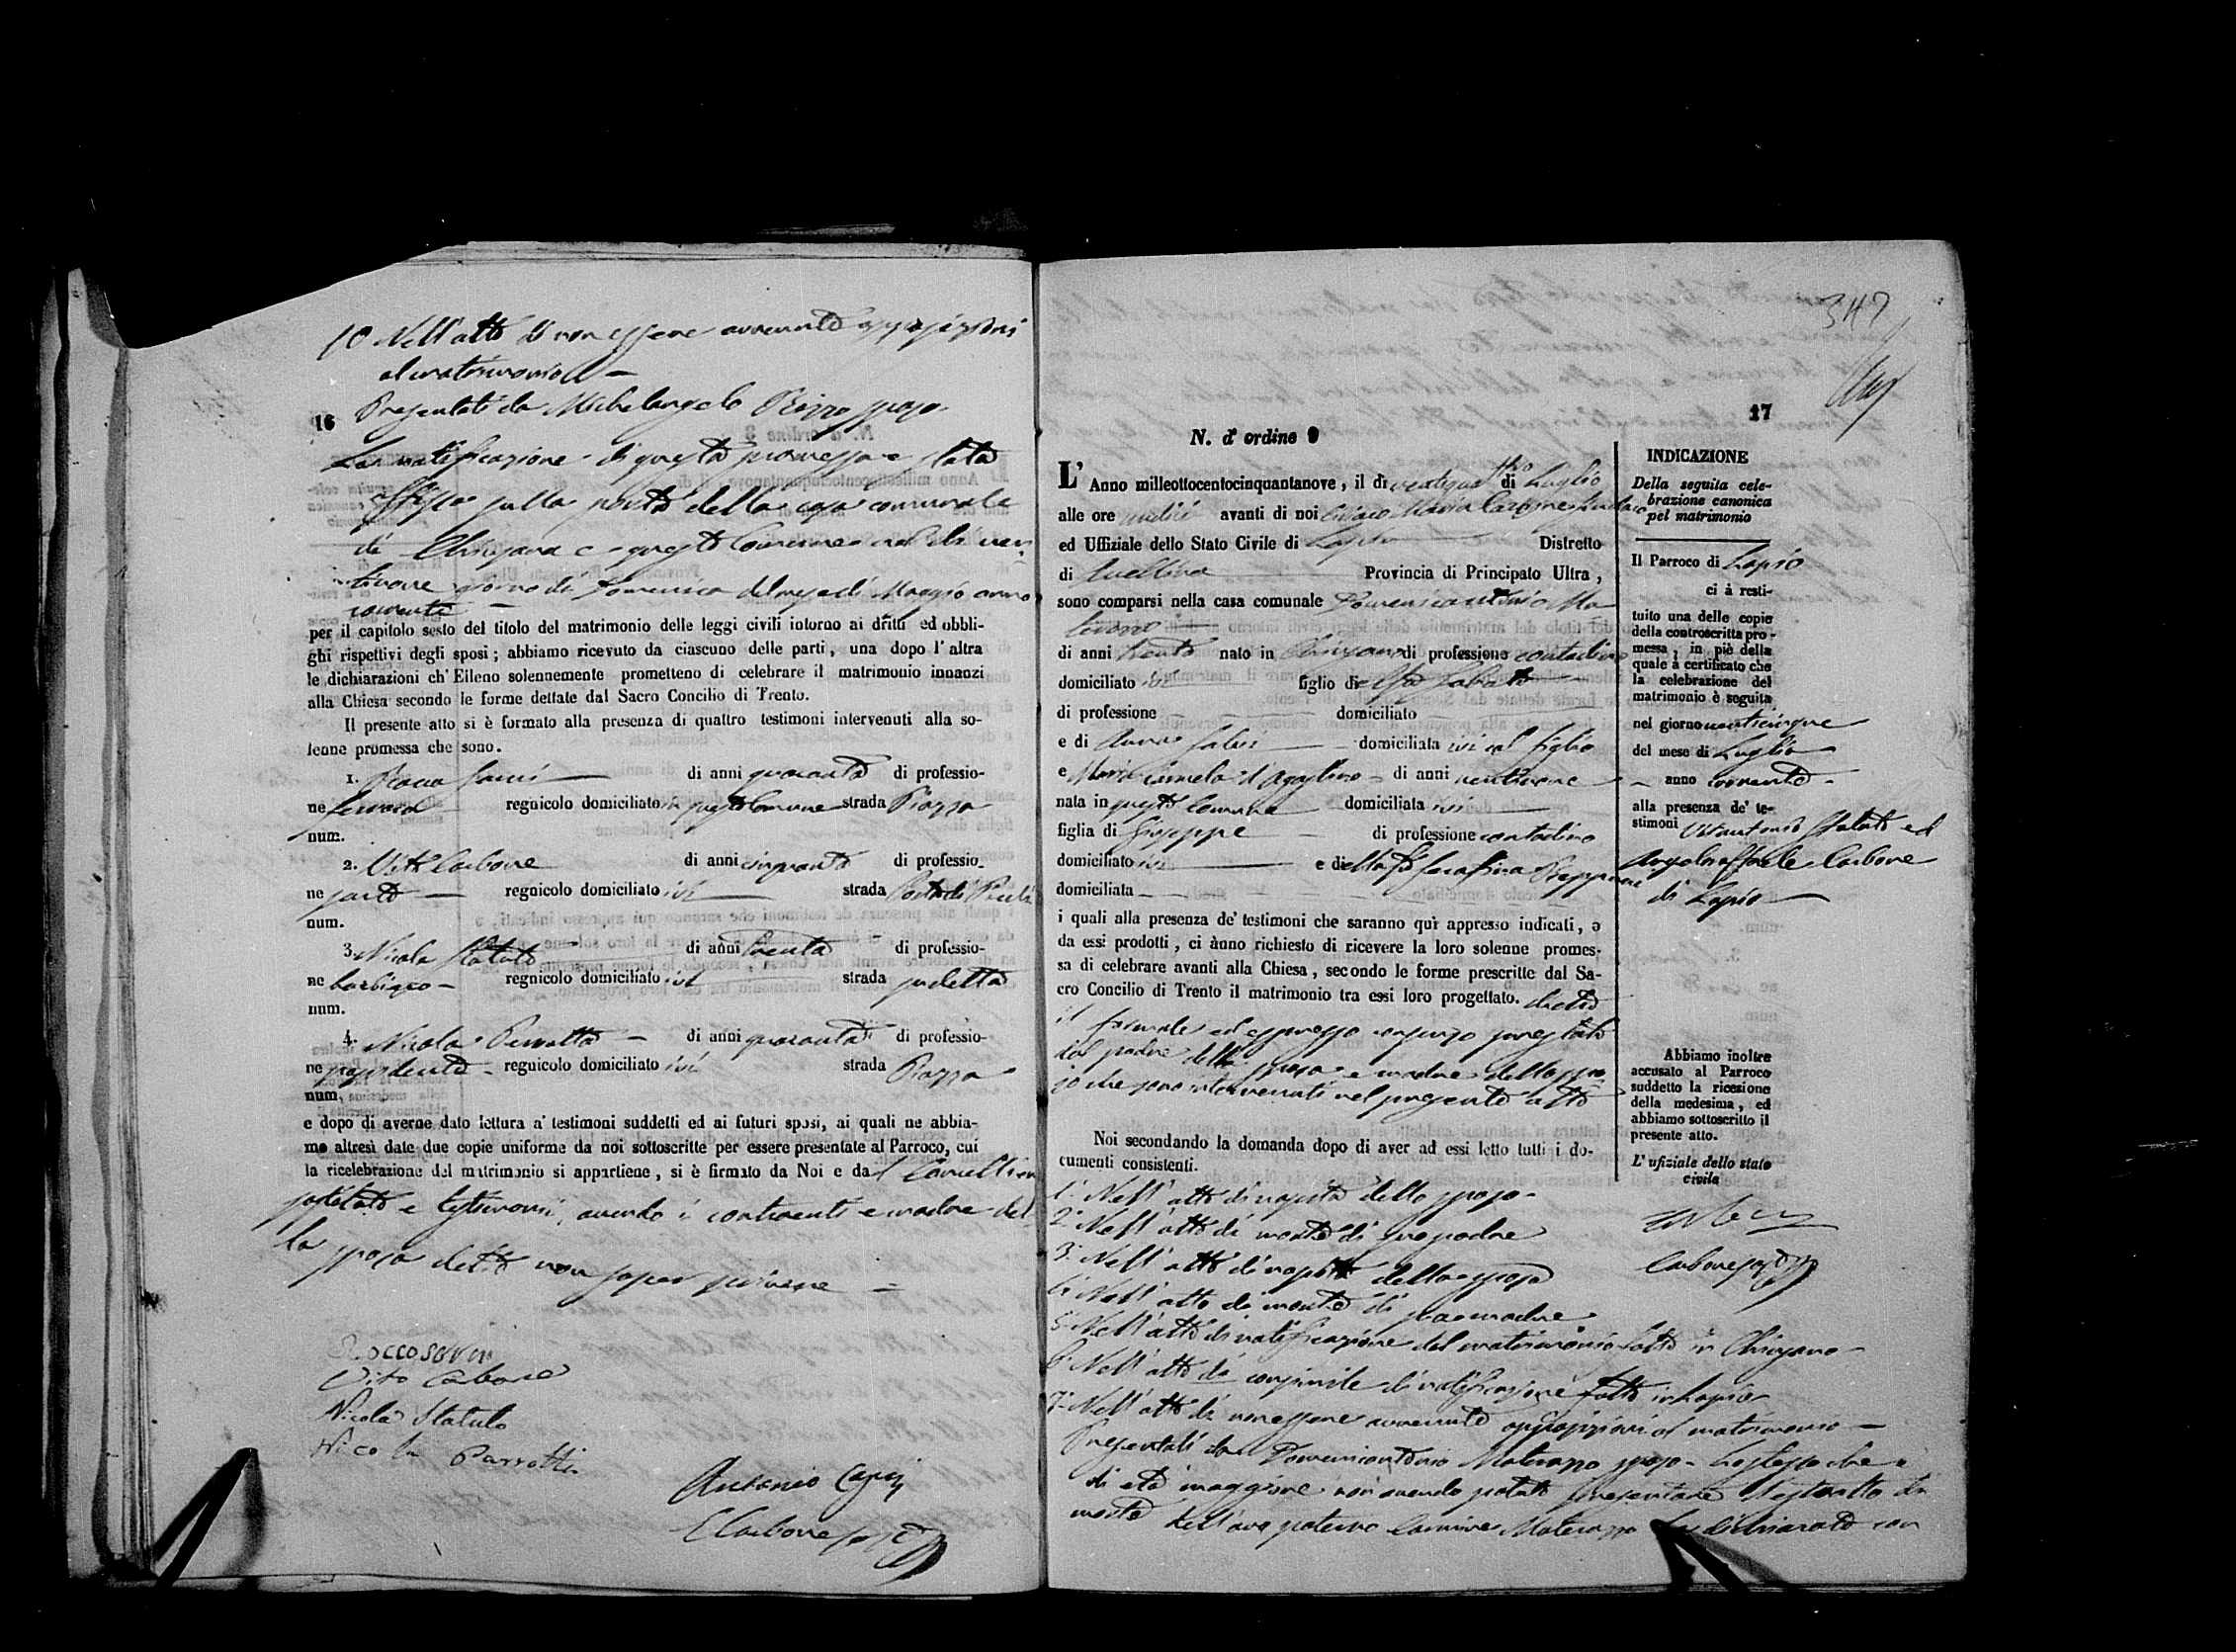 10 Nell'atto di non essere avvenute opposizioni
al matrimonio
Presentati da Michelangelo Rizzo sposo
16
La notificazione di questa promessa è stata
affissa sulla porta della casa comunale
di Chiusano e questo Comune nel dì ven-
tinove giorno di Domenica del mese di Maggio anno
corrente
per il capitolo sesto del titolo del matrimonio delle leggi civili intorno ai dritti ed obbli-
ghi rispettivi degli sposi; abbiamo ricevuto da ciascuno delle parti, una dopo l'altra
le dichiarazioni ch'Elleno solennemente promettono di celebrare il matrimonio innanzi
alla Chiesa secondo le forme dettate dal Sacro Concilio di Trento.
Il presente atto si è formato alla presenza di quattro testimoni intervenuti alla so-
lenne promessa che sono.
1. Rocco di anni quaranta di professio-
ne regnicolo domiciliato in questo Comune strada Piazza
num.
2. Vito Carbone di anni cinquanta di professio-
ne sarto regnicolo domiciliato ivi strada
num.
3. Nicola Statuto di anni trenta di professio-
ne regnicolo domiciliato ivi strada
num.
4. Nicola Perrotta di anni quaranta di professio-
ne regnicolo domiciliato ivi strada Piazza
num.
e dopo di averne dato lettura a' testimoni suddetti ed ai futuri sposi, ai quali ne abbia-
mo altresì date due copie uniforme da noi sottoscritte per essere presentate al Parroco, cui
la ricelebrazione del matrimonio si appartiene, si è firmato da Noi e dal Cancelliere
sostituto e testimoni, avendo i contraenti e madre del-
la sposa detto non saper scrivere
Rocco
Vito Carbone
Nicola Statuto
Nicola Parrotta
Antonio
C Carbone
347
17
N. d'ordine 9
L'Anno milleottocentocinquantanove, il dì ventiquattro di Luglio
alle ore undici avanti di noi Ciriaco Maria Carbone Sindaco
ed Uffiziale dello Stato Civile di Lapio Distretto
di Avellino Provincia di Principato Ultra,
sono comparsi nella casa comunale Domenicantonio Ma-
terazzo
di anni trenta nato in Chiusano di professione contadino
domiciliato ivi figlio del fu Sabato
di professione domiciliato
e di Anna domiciliata ivi col figlio
e Maria Carmela d'Agostino di anni ventinove
nata in questo Comune domiciliata ivi
figlia di Giuseppe di professione contadino
domiciliato ivi e della fu Serafina
domiciliata
i quali alla presenza de' testimoni che saranno quì appresso indicati, e
da essi prodotti, ci ànno richiesto di ricevere la loro solenne promes-
sa di celebrare avanti alla Chiesa, secondo le forme prescritte dal Sa-
cro Concilio di Trento il matrimonio tra essi loro progettato. dietro
il formale ed espresso consenso prestato
dal padre della sposa e madre dello spo-
so che sono intervenuti nel presente atto
Noi secondando la domanda dopo di aver ad essi letto tutti i do-
cumenti consistenti.
1. Nell'atto di nascita dello sposo
2. Nell'atto di morte di suo padre
3. Nell'atto di nascita della sposa
4. Nell'atto di morte di sua madre
5. Nell'atto di notificazione del matrimonio fatto in Chiusano
6. Nell'atto di consimile di notificazione fatto in Lapio
7. Nell'atto di non essere avvenute opposizioni al matrimonio
Presentati da Domenicantonio Materazzo sposo. Lo stesso che è
di età maggiore non avendo potuto presentare l'estratto di
morte dell'avo paterno Carmine Materazzo ha dichiarato con
INDICAZIONE
Della seguita cele-
brazione canonica
pel matrimonio
Il Parroco di Lapio
ci à resti-
tuito una delle copie
della controscritta pro-
messa, in piè della
quale à certificato che
la celebrazione del
matrimonio è seguita
nel giorno venticinque
del mese di Luglio
anno corrente
alla presenza de' te-
stimoni Vitantonio Statuto ed
Angelo Raffaele Carbone
di Lapio
Abbiamo inoltre
accusato al Parroco
suddetto la ricezione
della medesima, ed
abbiamo sottoscritto il
presente atto.
L'ufiziale dello stato
civile
Carbone